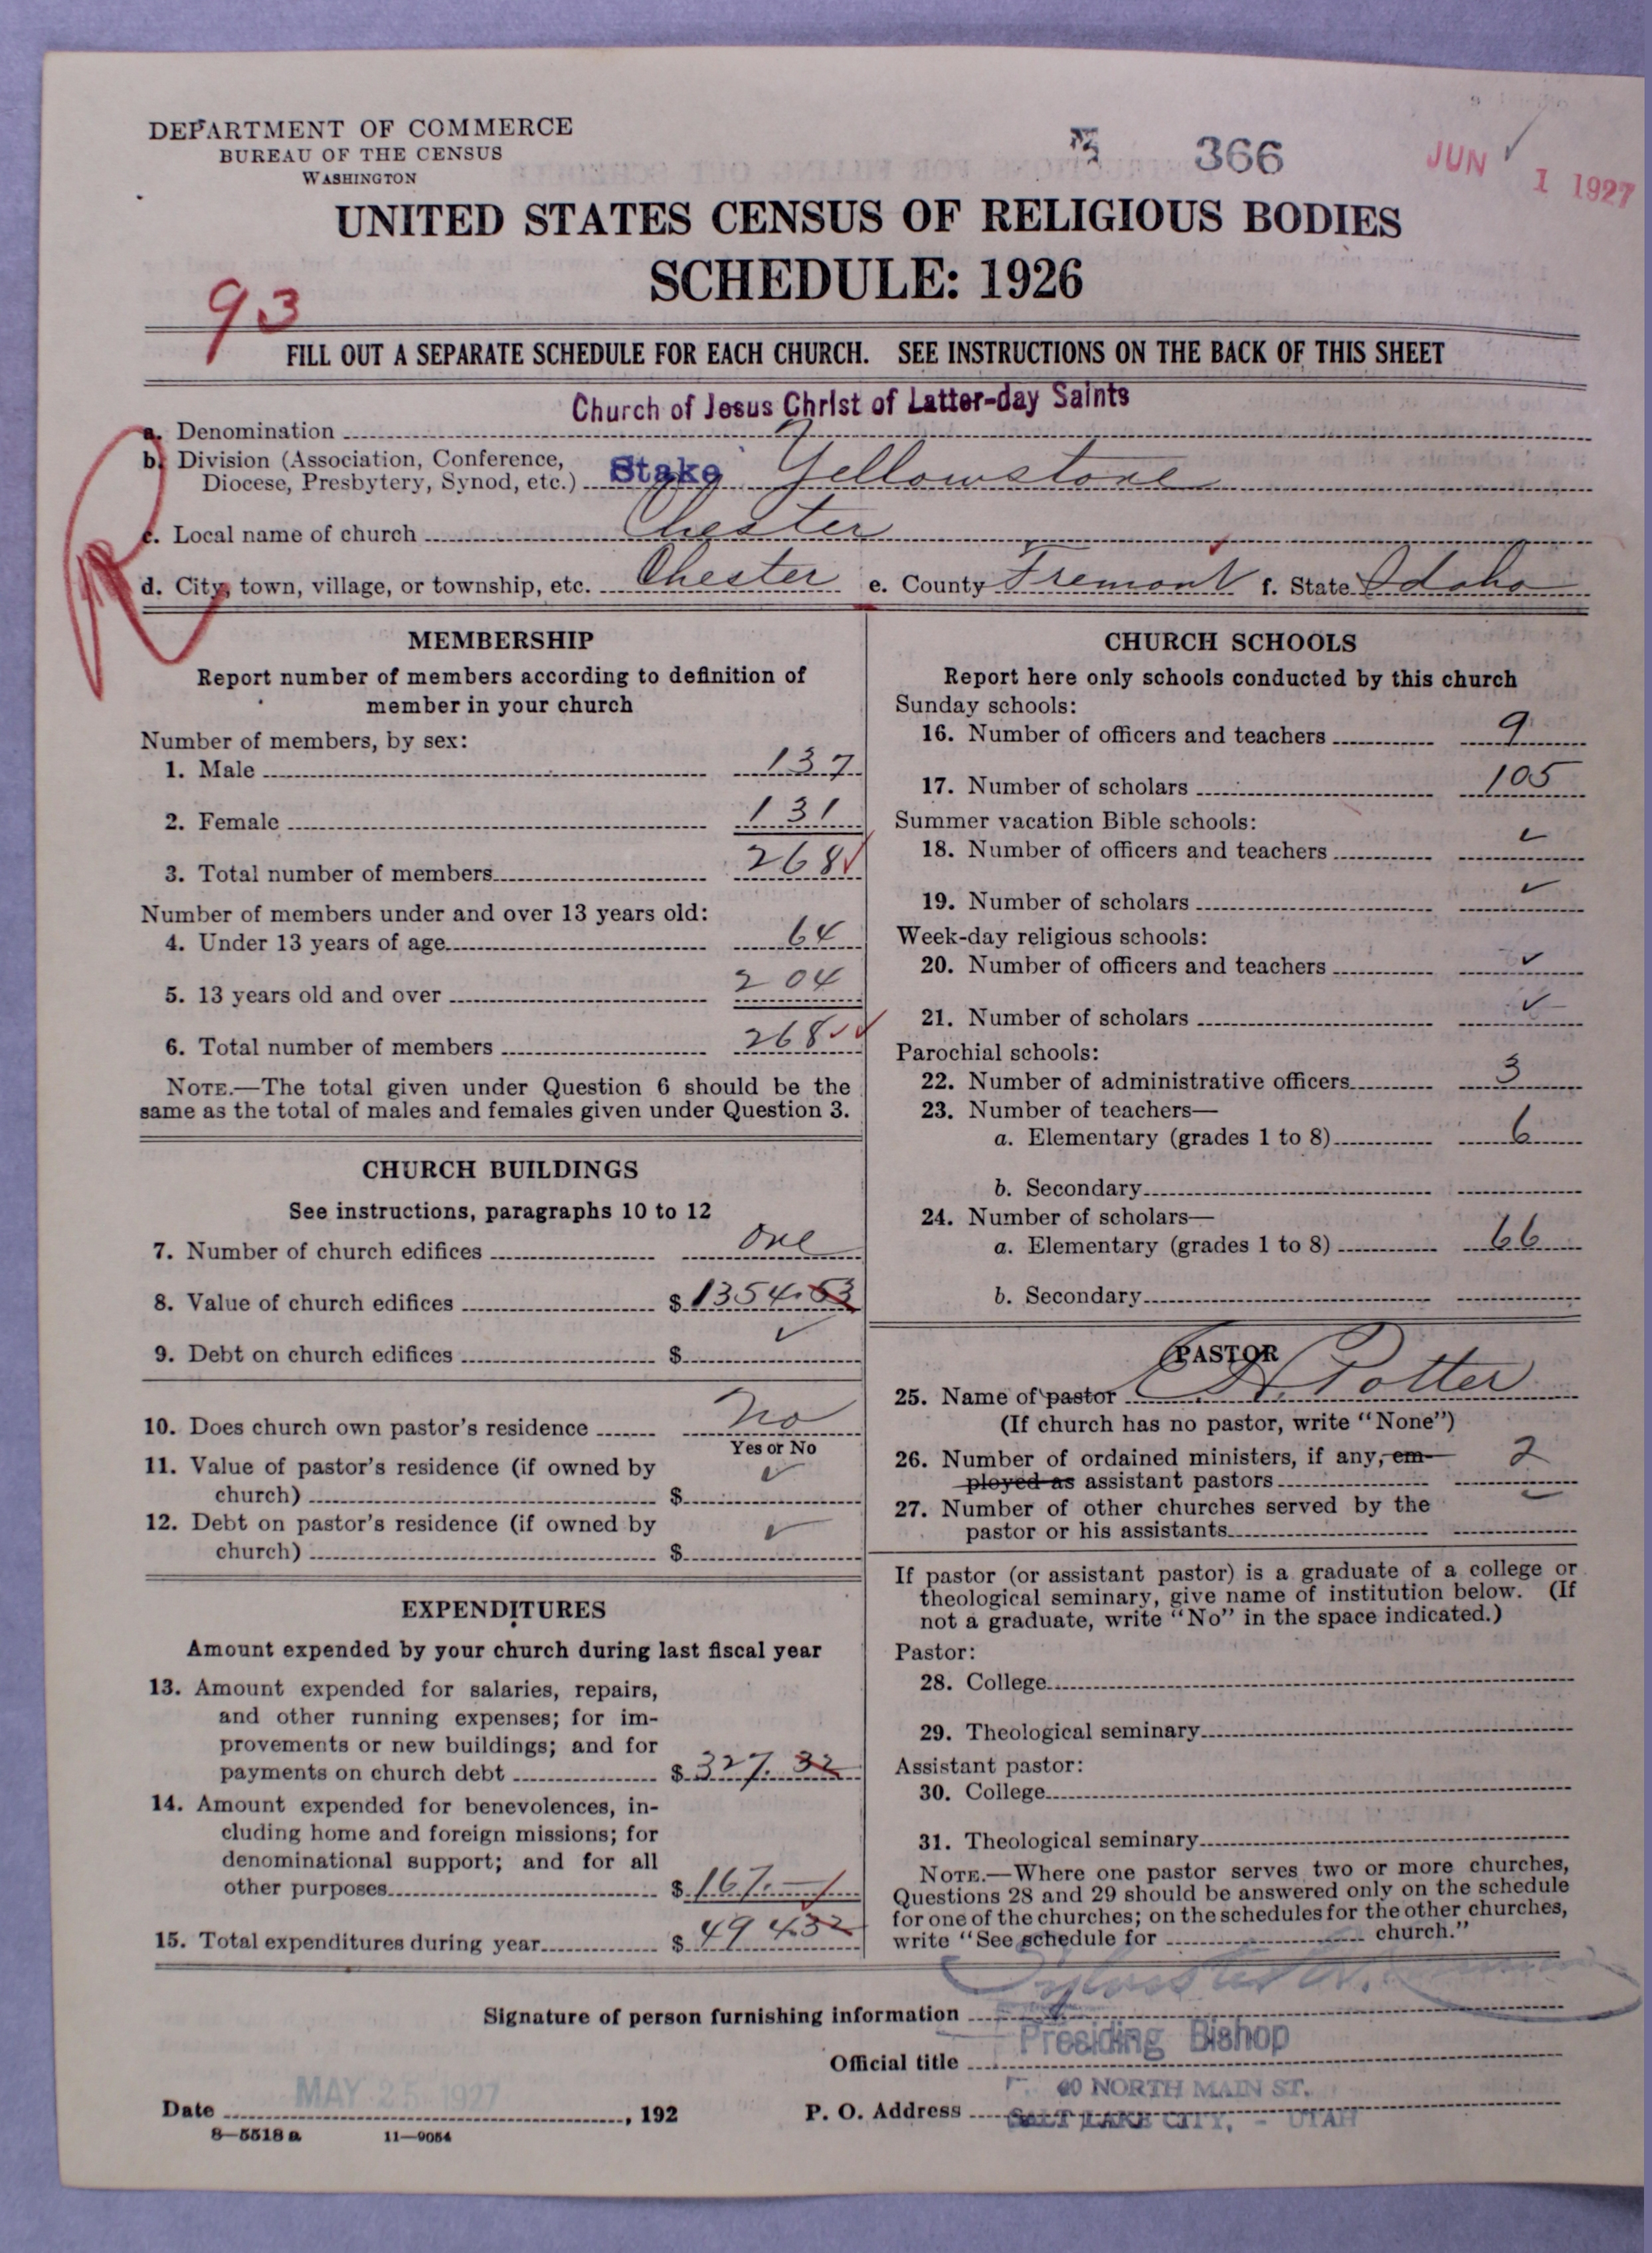 DEPARTMENT OF COMMERCE
BUREAU OF THE CENSUS
WASHINGTON
366
JUN 1 1927
UNITED STATES CENSUS OF RELIGIOUS BODIES
SCHEDULE: 1926
93
FILL OUT A SEPARATE SCHEDULE FOR EACH CHURCH. SEE INSTRUCTIONS ON THE BACK OF THIS SHEET
Church of Jesus Christ of Latter-day Saints
a. Denomination
b. Division (Association, Conference,
Diocese, Presbytery, Synod, etc.) Stake Yellowstone
c. Local name of church Chester
d. City, town, village, or township, etc. Chester e. County Fremont f. State Idaho
R
MEMBERSHIP
Report number of members according to definition of
member in your church
Number of members, by sex:
1. Male 137
2. Female 131
3. Total number of members 268
Number of members under and over 13 years old:
4. Under 13 years of age 64
5. 13 years old and over 204
6. Total number of members 268
NOTE.—The total given under Question 6 should be the
same as the total of males and females given under Question 3.
CHURCH BUILDINGS
See instructions, paragraphs 10 to 12
7. Number of church edifices one
8. Value of church edifices $ 1354.53
9. Debt on church edifices $ ✓
10. Does church own pastor's residence No
Yes or No
11. Value of pastor's residence (if owned by
church) $ ✓
12. Debt on pastor's residence (if owned by
church) $ ✓
EXPENDITURES
Amount expended by your church during last fiscal year
13. Amount expended for salaries, repairs,
and other running expenses; for im-
provements or new buildings; and for
payments on church debt $ 327.32
14. Amount expended for benevolences, in-
cluding home and foreign missions; for
denominational support; and for all
other purposes $ 167.—
15. Total expenditures during year $ 494.32
CHURCH SCHOOLS
Report here only schools conducted by this church
Sunday schools:
16. Number of officers and teachers 9
17. Number of scholars 105
Summer vacation Bible schools:
18. Number of officers and teachers ✓
19. Number of scholars ✓
Week-day religious schools:
20. Number of officers and teachers ✓
21. Number of scholars ✓
Parochial schools:
22. Number of administrative officers 3
23. Number of teachers—
a. Elementary (grades 1 to 8) 6
b. Secondary
24. Number of scholars—
a. Elementary (grades 1 to 8) 66
b. Secondary
PASTOR
25. Name of pastor E H. Potter
(If church has no pastor, write "None")
26. Number of ordained ministers, if any, em-
ployed as assistant pastors 2
27. Number of other churches served by the
pastor or his assistants ✓
If pastor (or assistant pastor) is a graduate of a college or
theological seminary, give name of institution below. (If
not a graduate, write "No" in the space indicated.)
Pastor:
28. College
29. Theological seminary
Assistant pastor:
30. College
31. Theological seminary
NOTE.—Where one pastor serves two or more churches,
Questions 28 and 29 should be answered only on the schedule
for one of the churches; on the schedules for the other churches,
write "See schedule for church."
Signature of person furnishing information
Official title Presiding Bishop
Date MAY 25 1927, 192
P. O. Address 40 NORTH MAIN ST.
SALT LAKE CITY, - UTAH
8—5518 a 11—9054